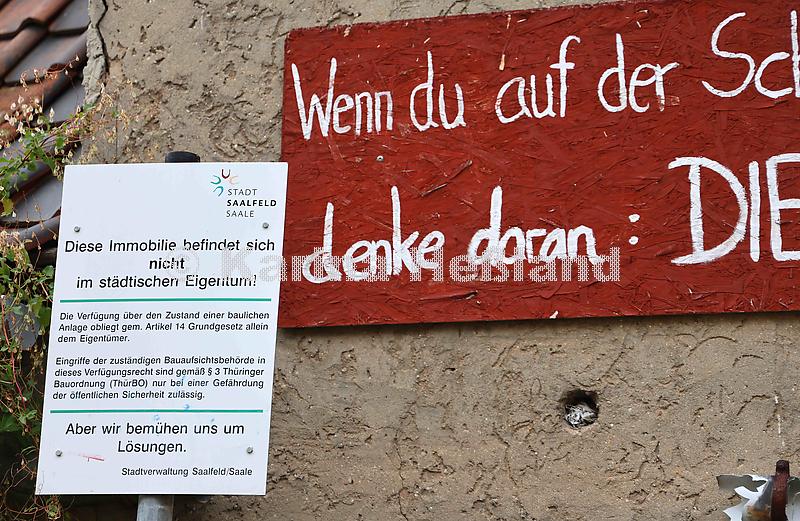 Wenn du auf der Sch
denke daran: DIE
STADT
SAALFELD
SAALE
Diese Immobilie befindet sich
nicht
im städtischen Eigentum!
Die Verfügung über den Zustand einer baulichen
Anlage obliegt gem. Artikel 14 Grundgesetz allein
dem Eigentümer.
Eingriffe der zuständigen Bauaufsichtsbehörde in
dieses Verfügungsrecht sind gemäß § 3 Thüringer
Bauordnung (ThürBO) nur bei einer Gefährdung
der öffentlichen Sicherheit zulässig.
Aber wir bemühen uns um
Lösungen.
Stadtverwaltung Saalfeld/Saale